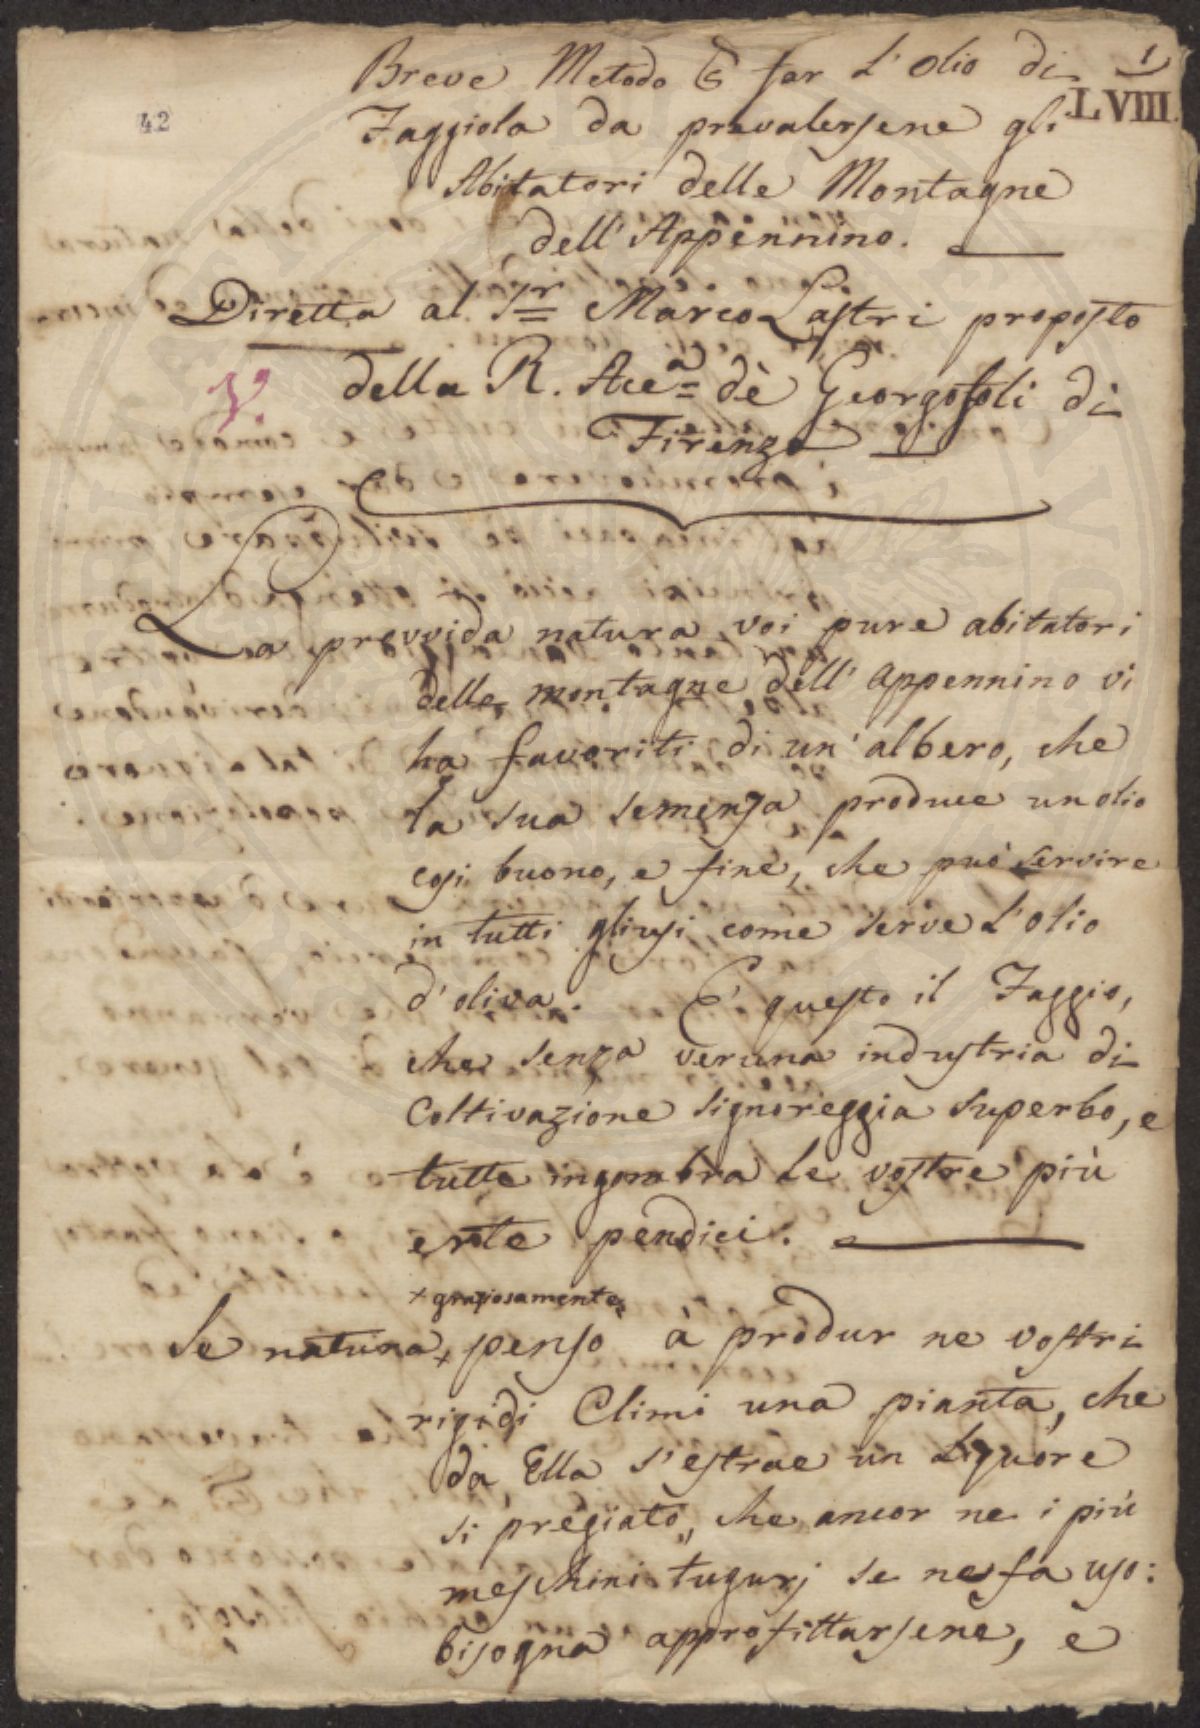 1
LVIII.
42
Breve Metodo P far L'Olio di
Faggiola da prevalersene gli
Abitatori delle Montagne
dell'Appennino.
Diretta al Sr Marco Lastri proposto
della R. Acca dè Georgofoli di
Firenze
La provvida natura voi pure abitatori
delle montagne dell'appennino vi
ha favoriti di un'albero, che
la sua semenza produce un olio
cosi buono, e fine, che può servire
in tutti gliusi come serve L'olio
d'oliva. E' questo il Faggio,
che senza veruna industria di
Coltivazione signoreggia superbo, e
tutte ingombra Le vostre più
erte pendici.
+ graziosamente
Se natura + penso à produr ne vostri
rigidi Climi una pianta, che
da Ella s'estrae un Liquore
si pregiato, che ancor ne i più
meschini tugurj se ne fa uso:
bisogna approfittarsene, e